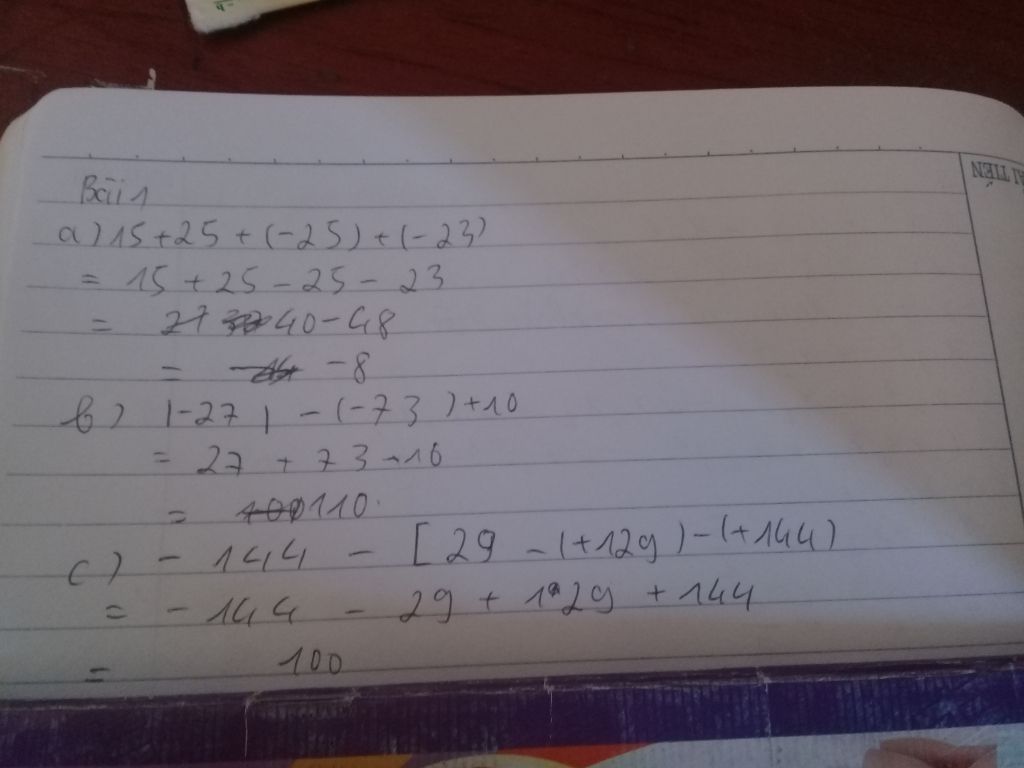 Bài 1
a) 15 + 25 + (-25) + (-23)
= 15 + 25 - 25 - 23
= 40 - 48
= -8
b) |-27| - (-73) + 10
= 27 + 73 + 10
= 110
c) - 144 - [29 - (+129) - (+144)
= - 144 - 29 + 129 + 144
= 100